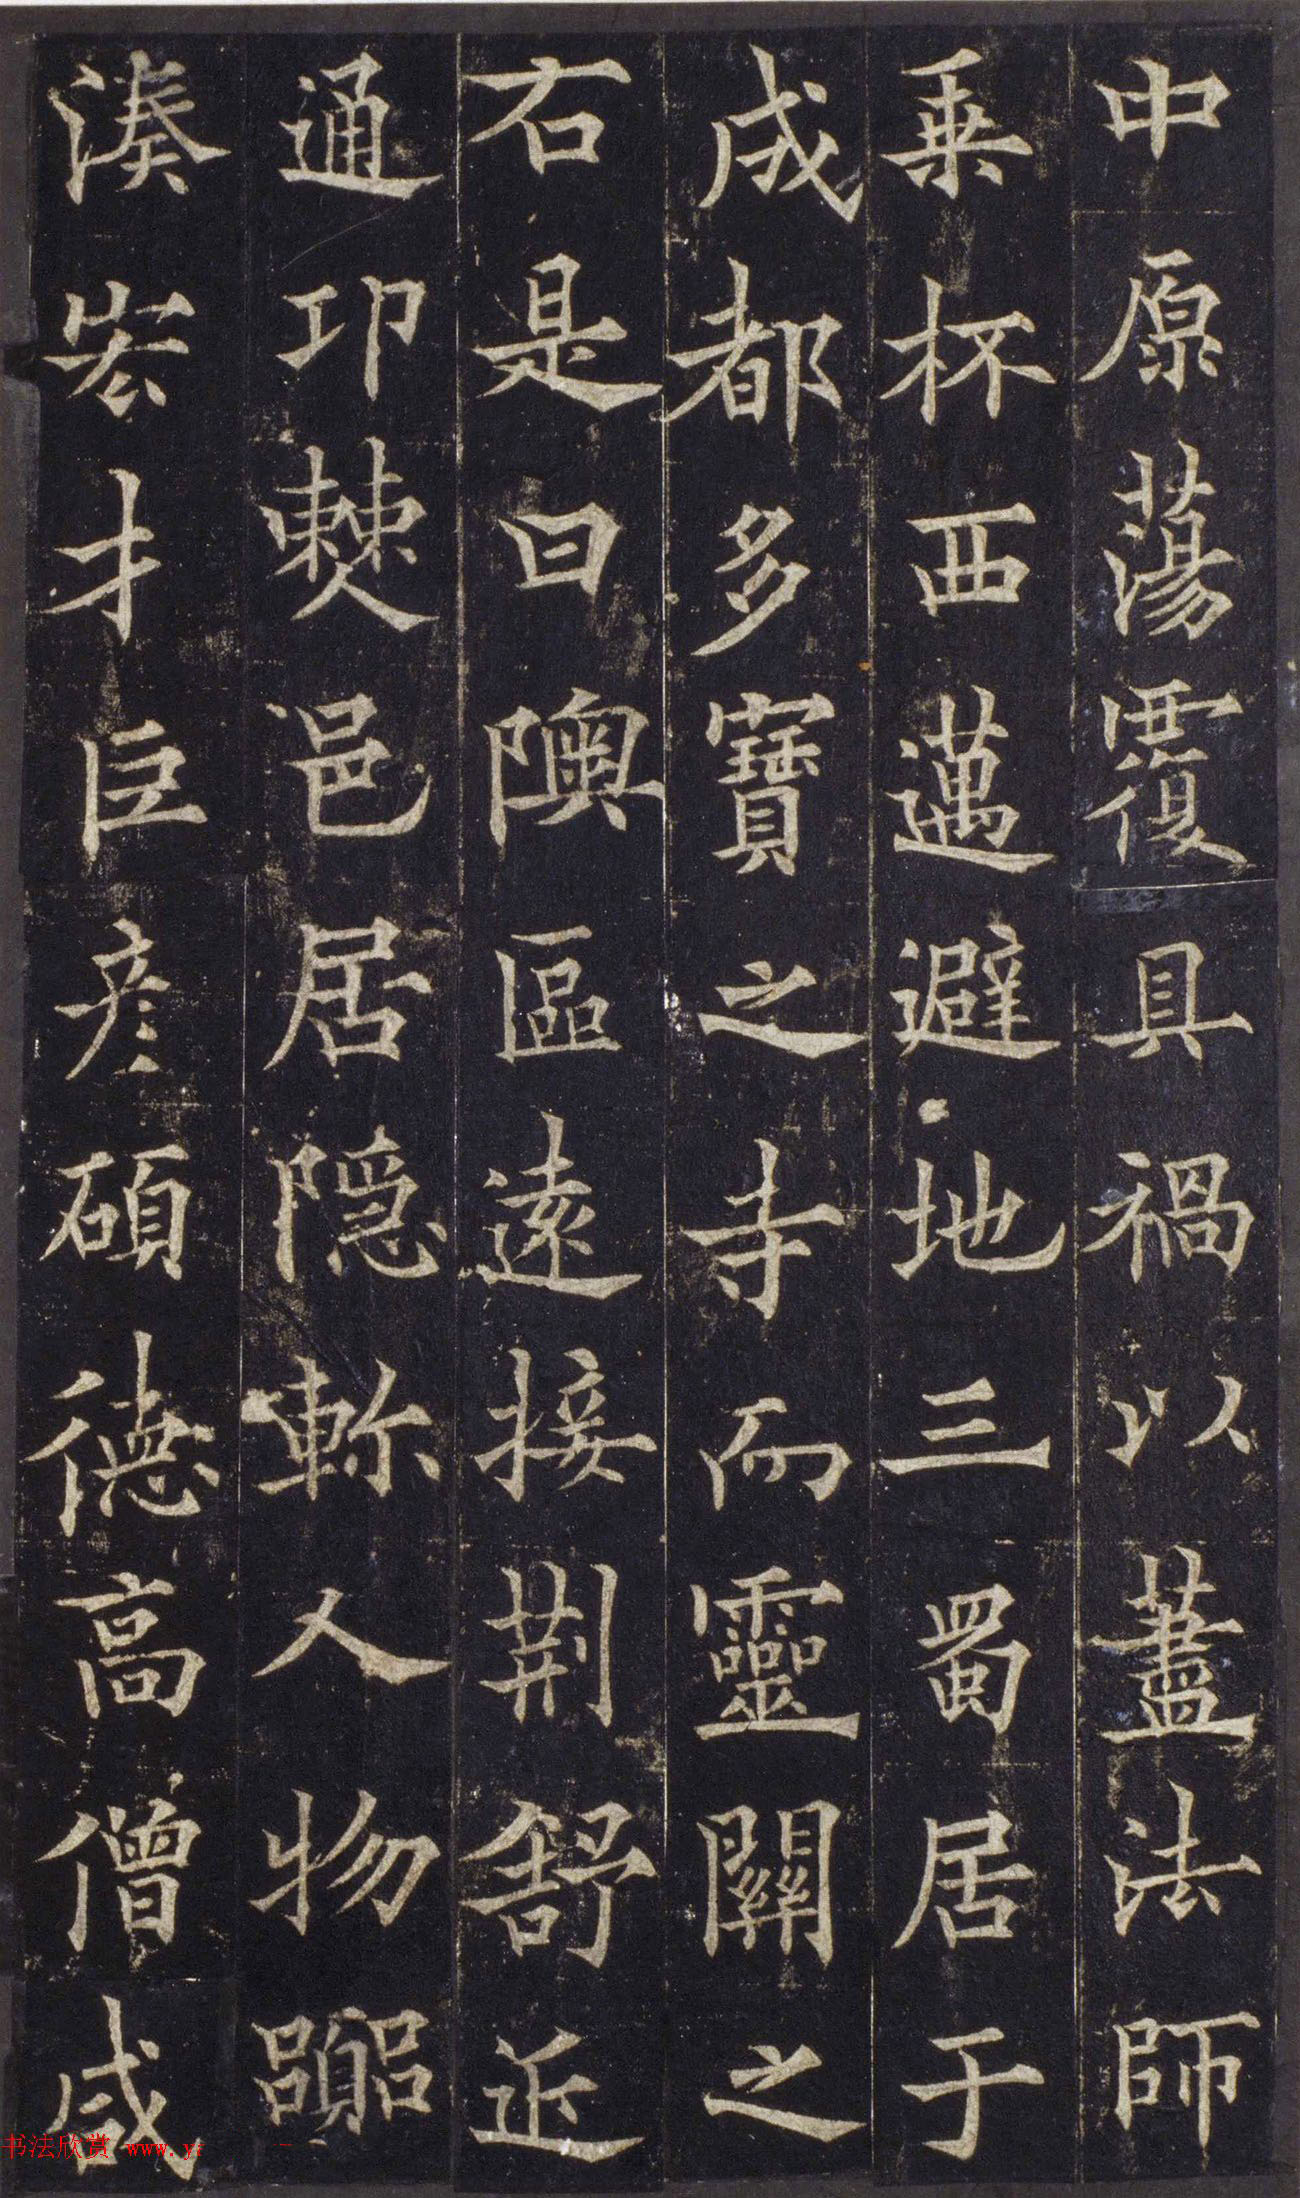 中原蕩覆具禍以藎法師
乗杯西邁避地三蜀居于
成都多寶之寺而靈關之
右是曰隩區遠接荆舒近
通邛僰邑居隱軫人物嚻
湊宏才巨彦碩德高僧咸
书法欣赏 www.y